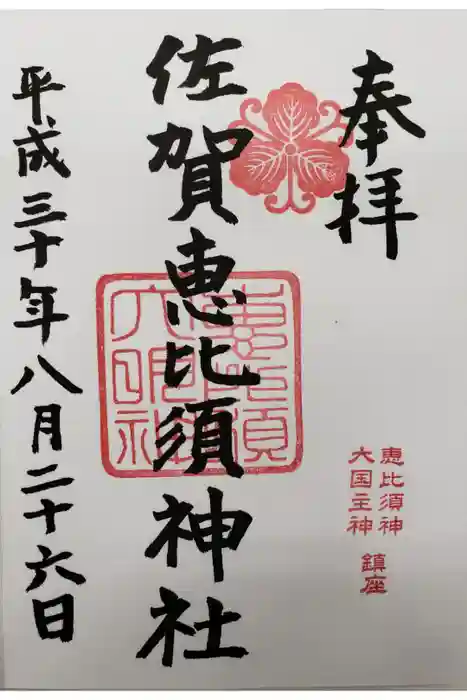 奉拝
佐賀恵比須神社
恵比須
大明神
平成三十年八月二十六日
恵比須神
大国主神
鎮座